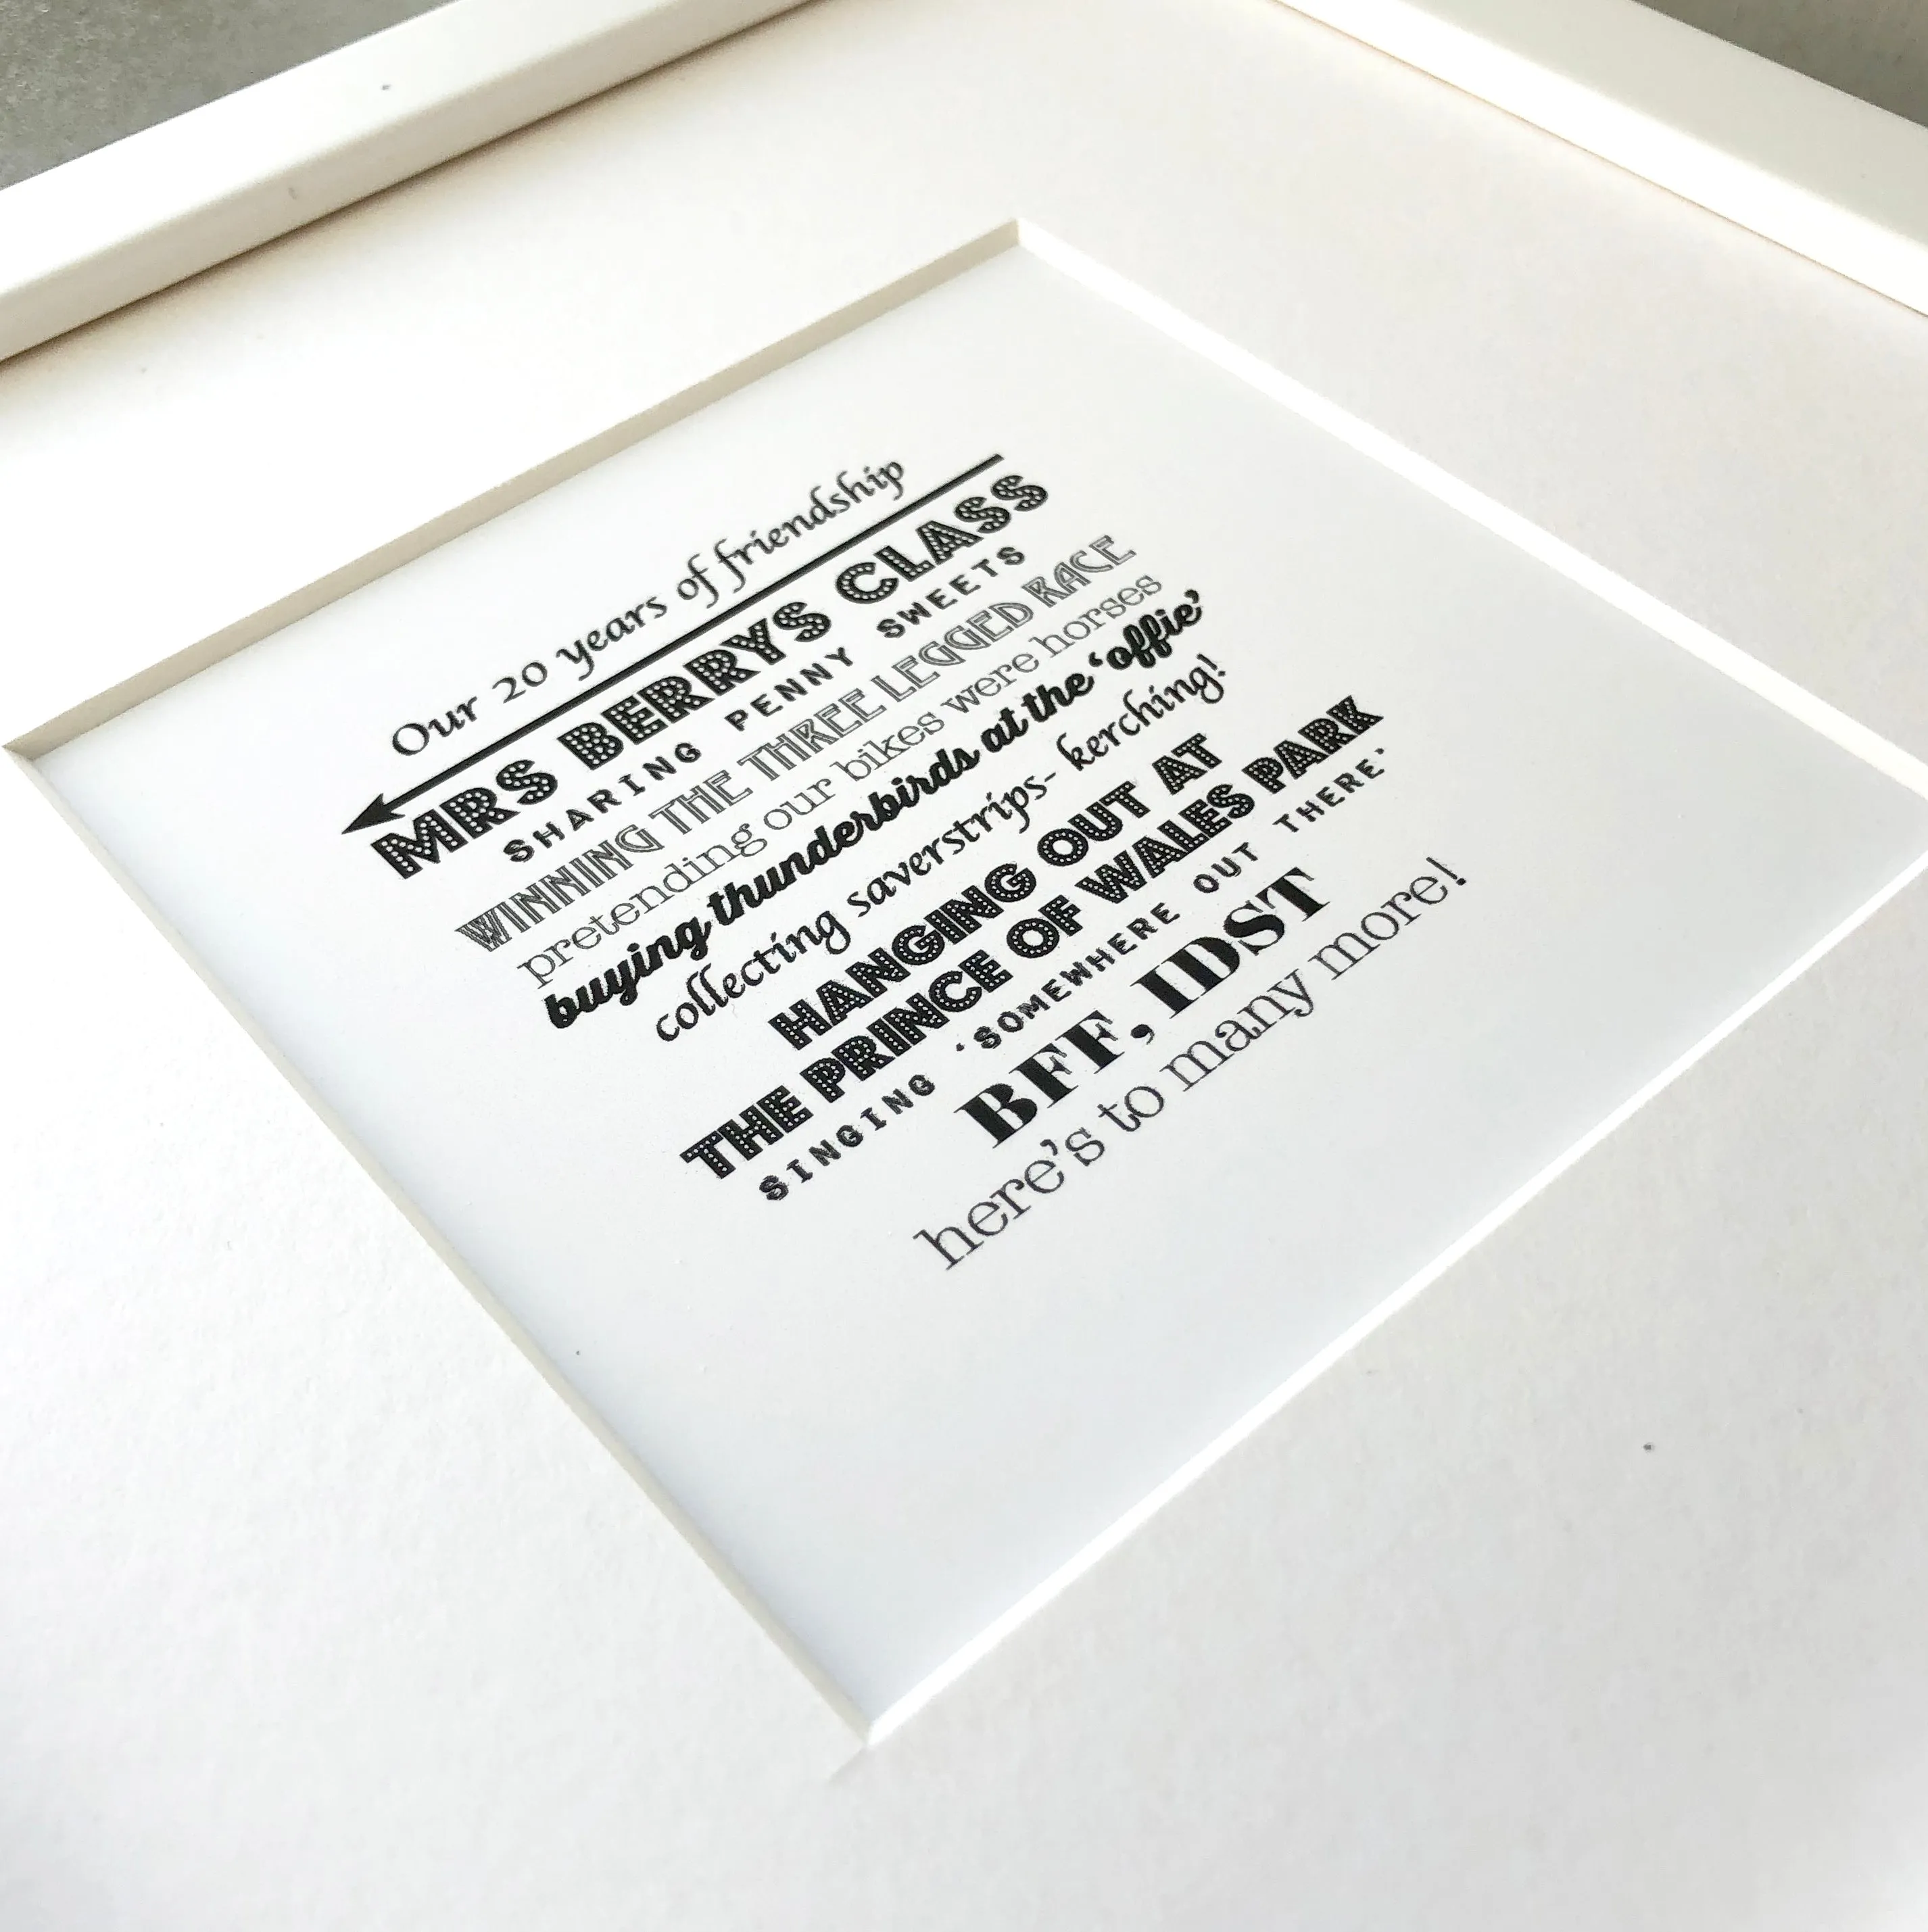 Our 20 years of friendship
MRS BERRYS CLASS
SHARING PENNY SWEETS
WINNING THE THREE LEGGED RACE
pretending our bikes were horses
buying thunderbirds at the 'offie'
collecting saverstrips- kerching!
HANGING OUT AT
THE PRINCE OF WALES PARK
SINGING 'SOMEWHERE OUT THERE'
BFF, IDST
here's to many more!